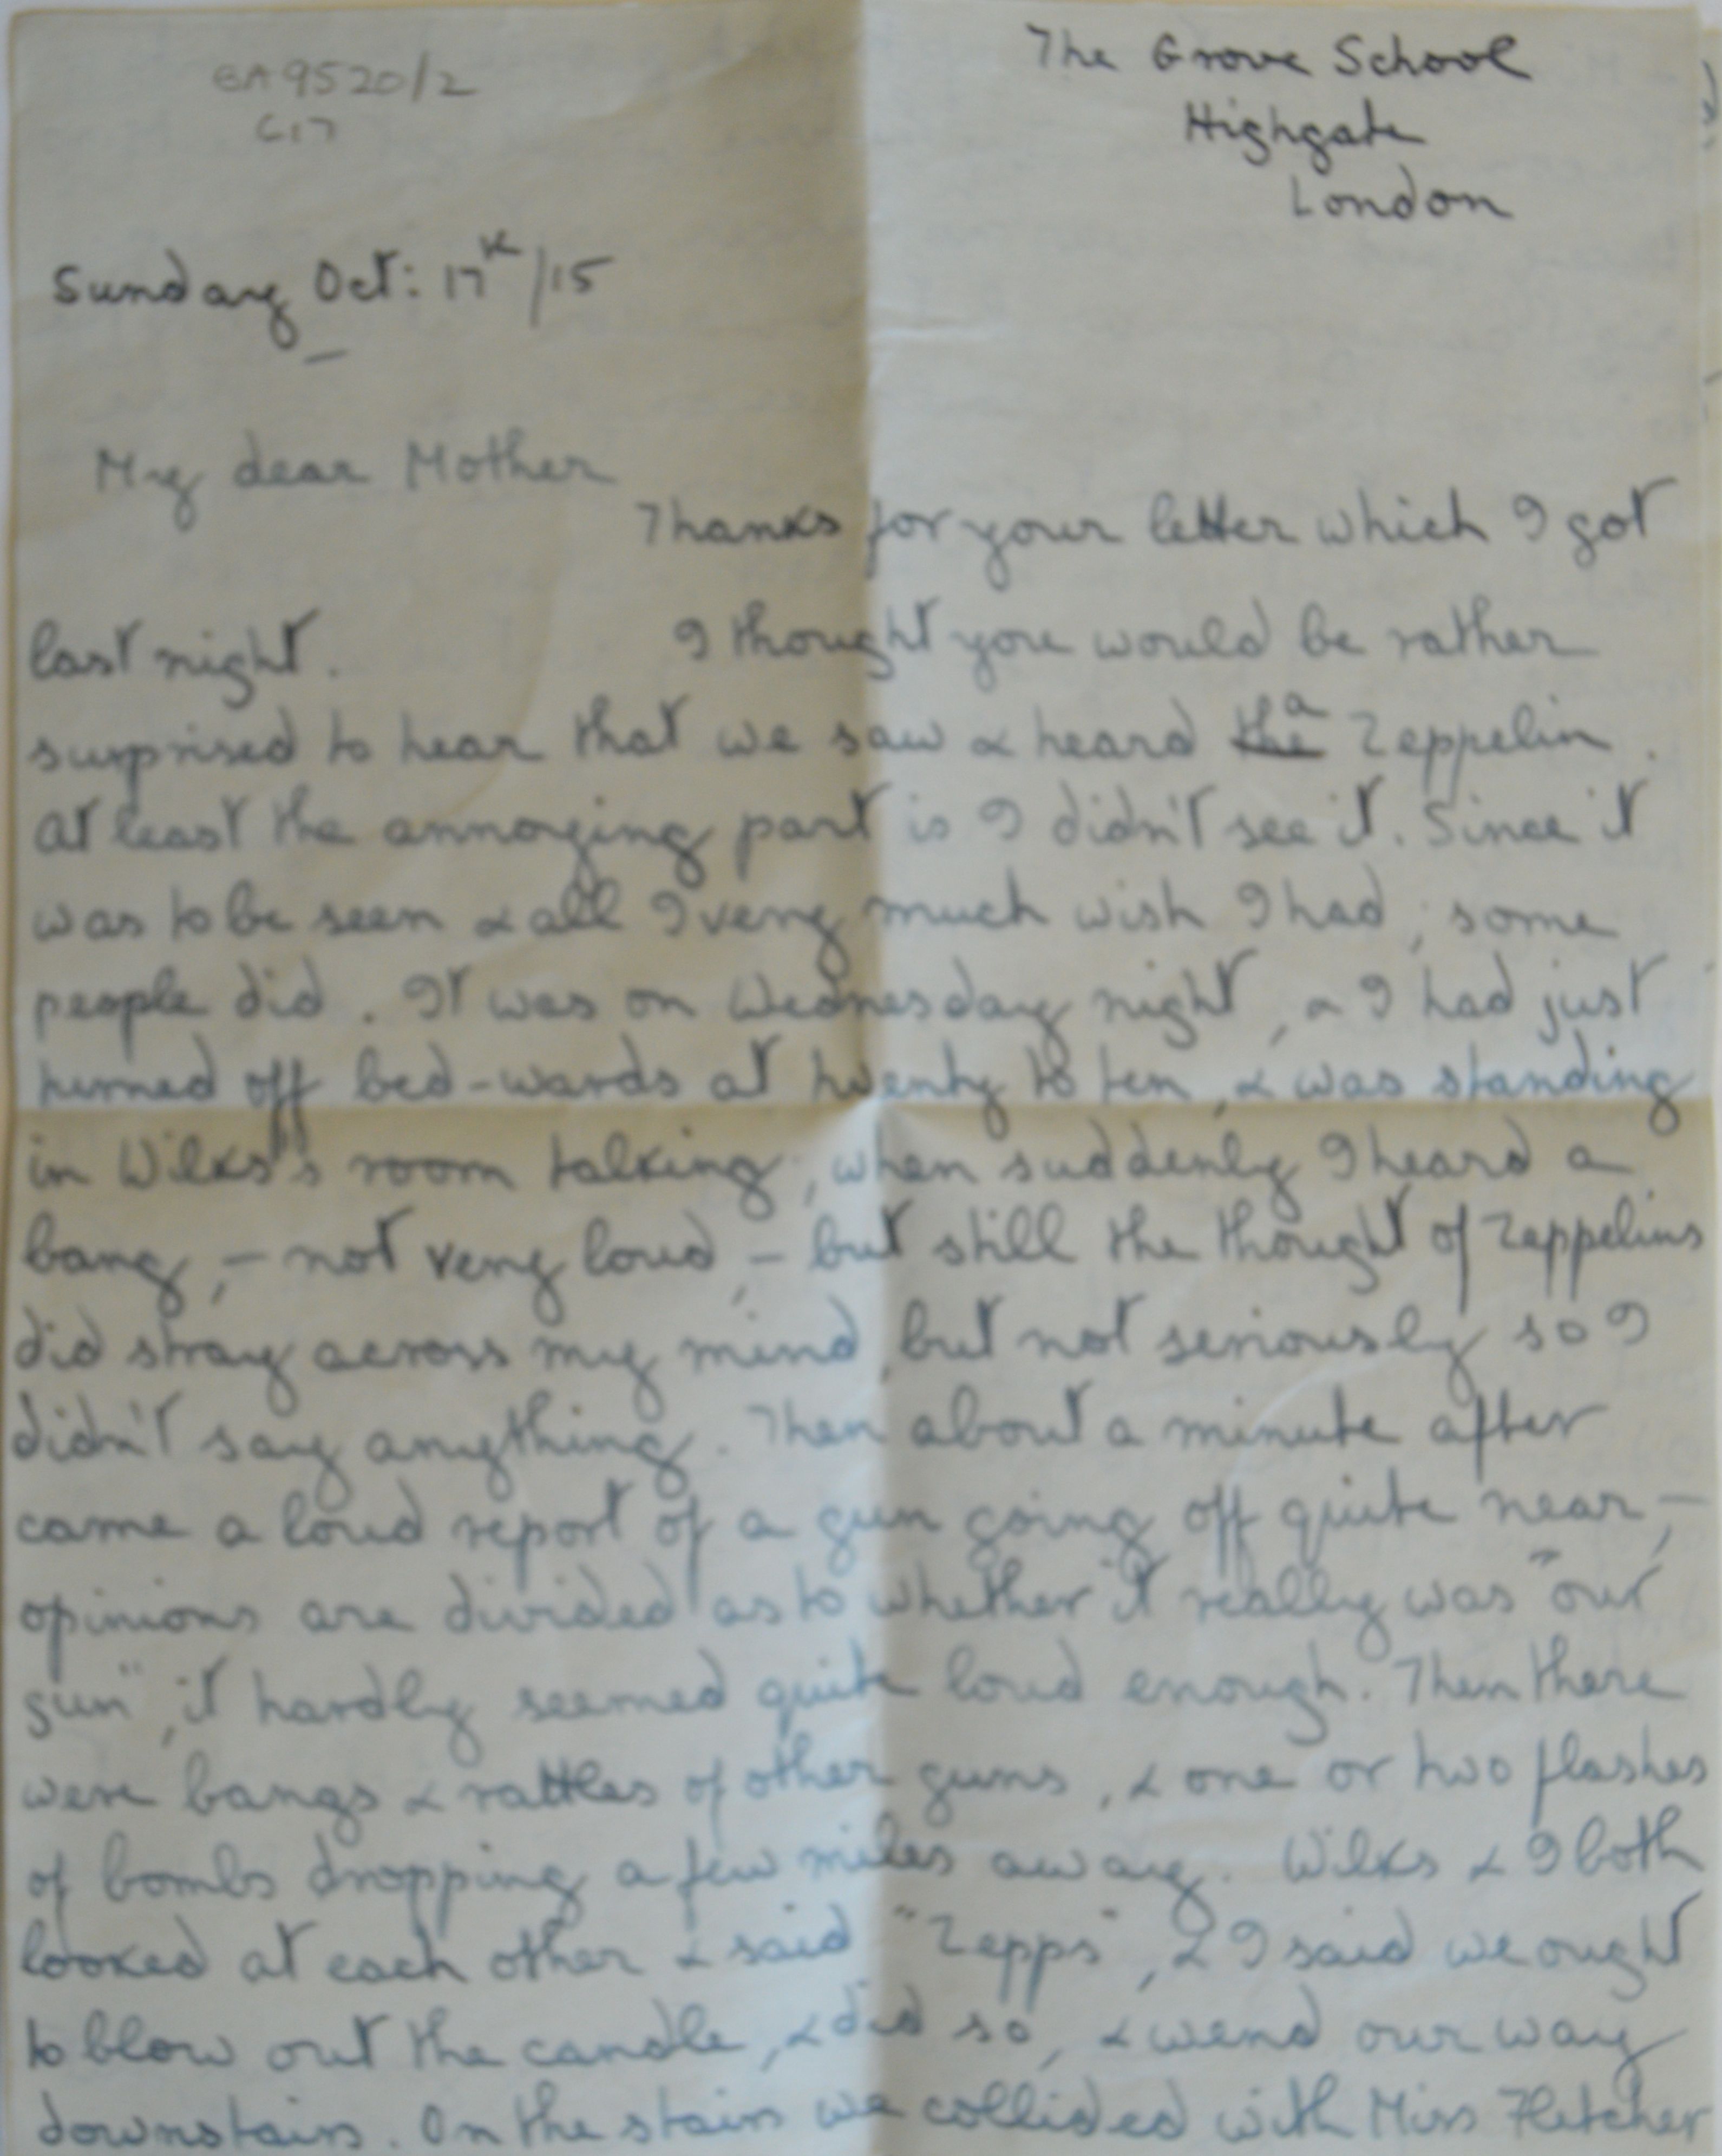 EA9520/2
C17
The Grove School
Highgate
London
Sunday Oct: 17th/15
My dear Mother
Thanks for your letter which I got
last night. I thought you would be rather
surprised to hear that we saw & heard the a Zeppelin.
at least the annoying part is I didn't see it. Since it
was to be seen & all I very much wish I had; some
people did. It was on Wednesday night, & I had just
turned off bed-wards at twenty to ten, & was standing
in Wilks's room talking, when suddenly I heard a
bang, - not very loud, - but still the thought of Zeppelins
did stray across my mind, but not seriously so I
didn't say anything. Then about a minute after
came a loud report of a gun going off quite near, -
opinions are divided as to whether it really was "our
gun", it hardly seemed quite loud enough. Then there
were bangs & rattles of other guns, & one or two flashes
of bombs dropping a few miles away. Wilks & I both
looked at each other & said "Zepps", & I said we ought
to blow out the candle, & did so, & wend our way
downstairs. On the stairs we collided with Miss Fletcher